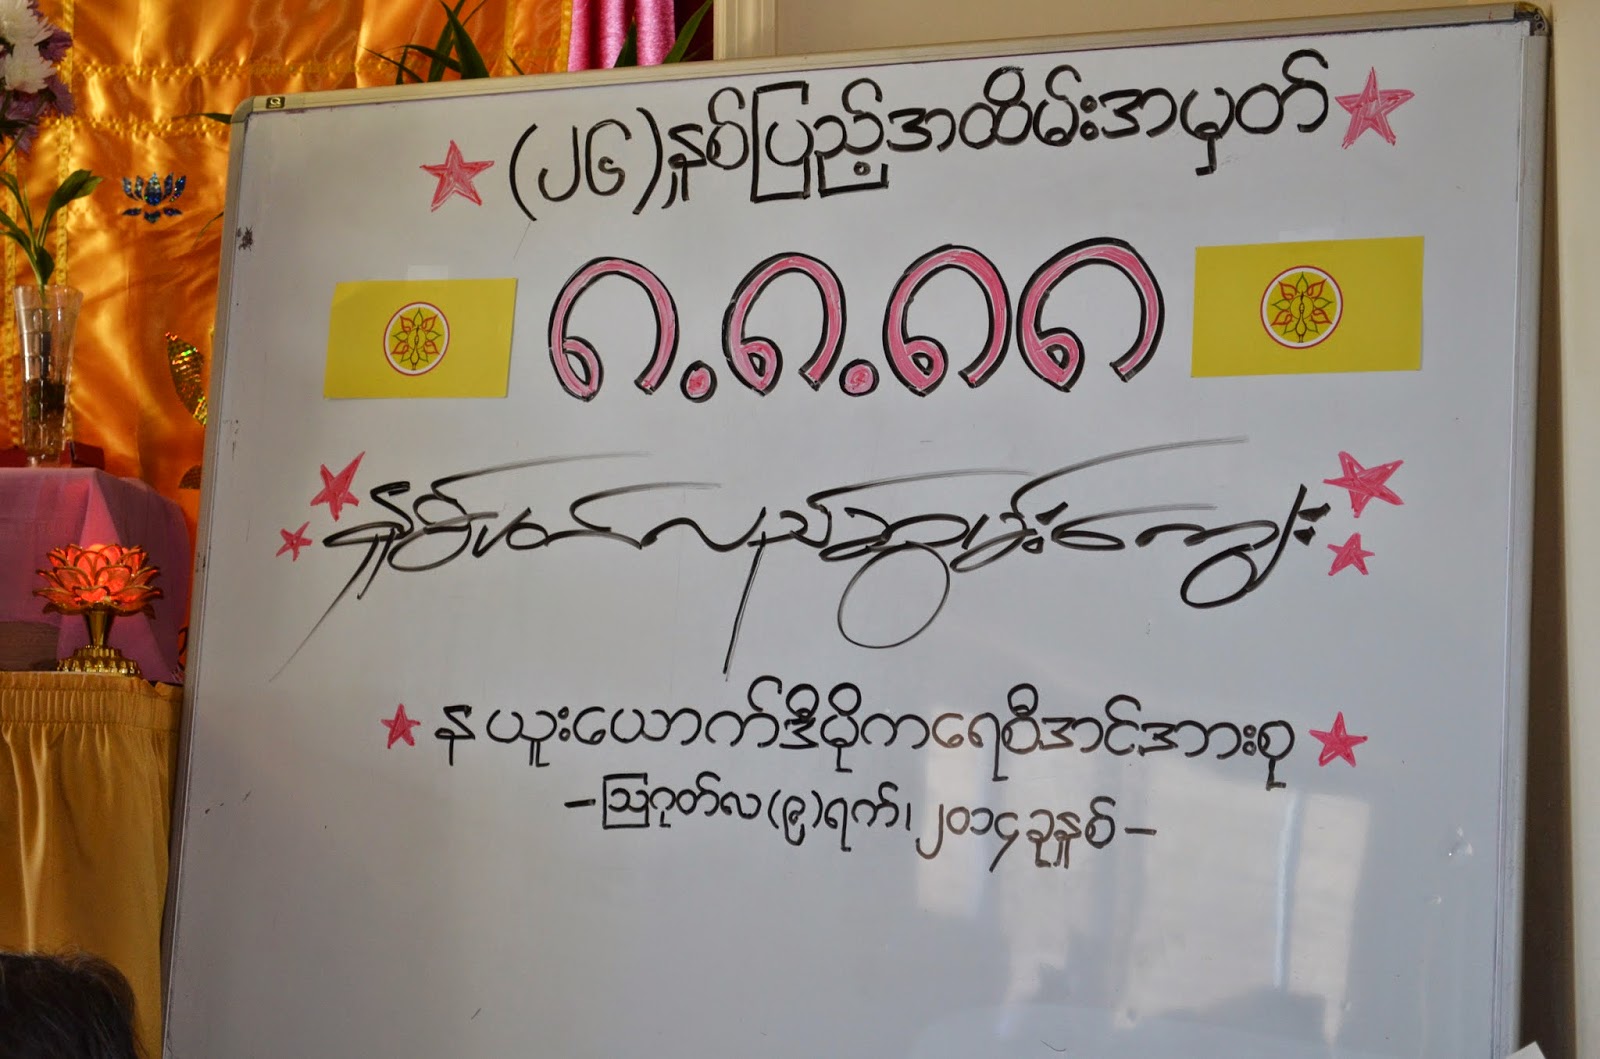 (၂၆)နှစ်ပြည့်အထိမ်းအမှတ်
၈.၈.၈၈
နှစ်ပတ်လည်ဆွမ်းကျွေး
န ယူးယောက်ဒီမိုကရေစီအင်အားစု
– ဩဂုတ်လ(၉)ရက်၊ ၂၀၁၄ခုနှစ် –